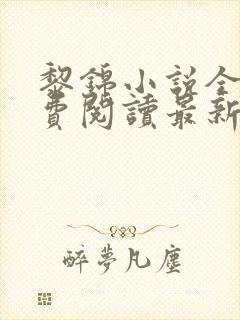 黎錦小說全
費閱讀最新
醉夢凡塵